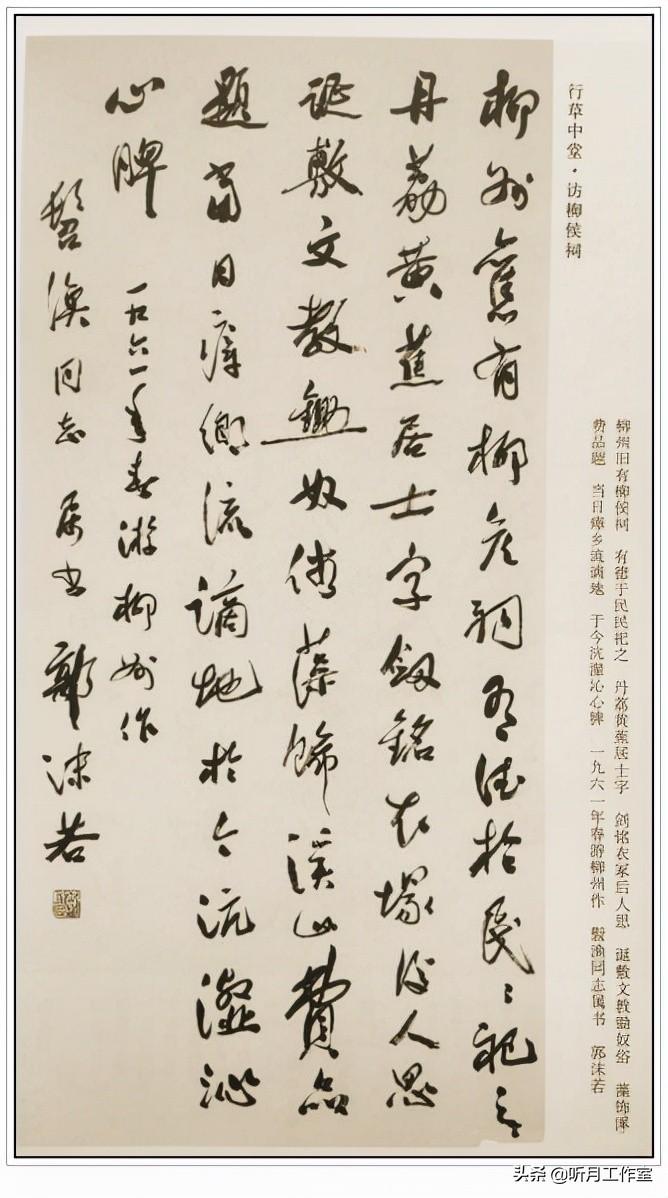 行草中堂·访柳侯祠
柳州旧有柳侯祠 有德于民民祀之 丹荔黄蕉居士字 剑铭衣冢后人思 诞敷文教锄奴俗 藻饰溪山
费品题 当日瘴乡流谪地 于今沆瀣沁心脾 一九六一年春游柳州作 同志属书 郭沫若
柳州舊有柳侯祠有德於民〻祀之
丹荔黄蕉居士字劔銘衣塚後人思
誕敷文教鋤奴俗藻飾溪山費品
題當日瘴鄉流謫地於今沆瀣沁
心脾 一九六一年春游柳州作
髫 同志属书 郭沫若
头条 @听月工作室